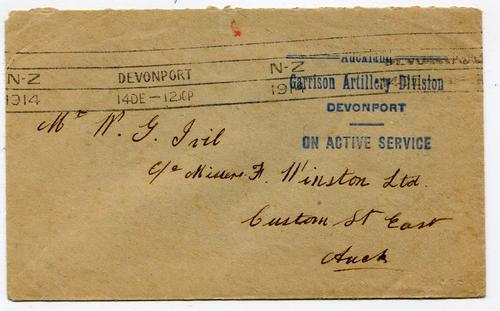 N-Z DEVONPORT N-Z DEVONPORT
1914 14DE-12
Auckland
Garrison Artillery Division
DEVONPORT
ON ACTIVE SERVICE
Mr W. G. Ivil
c/o Messrs. H. Winston Ltd.
Custom St East
Auck